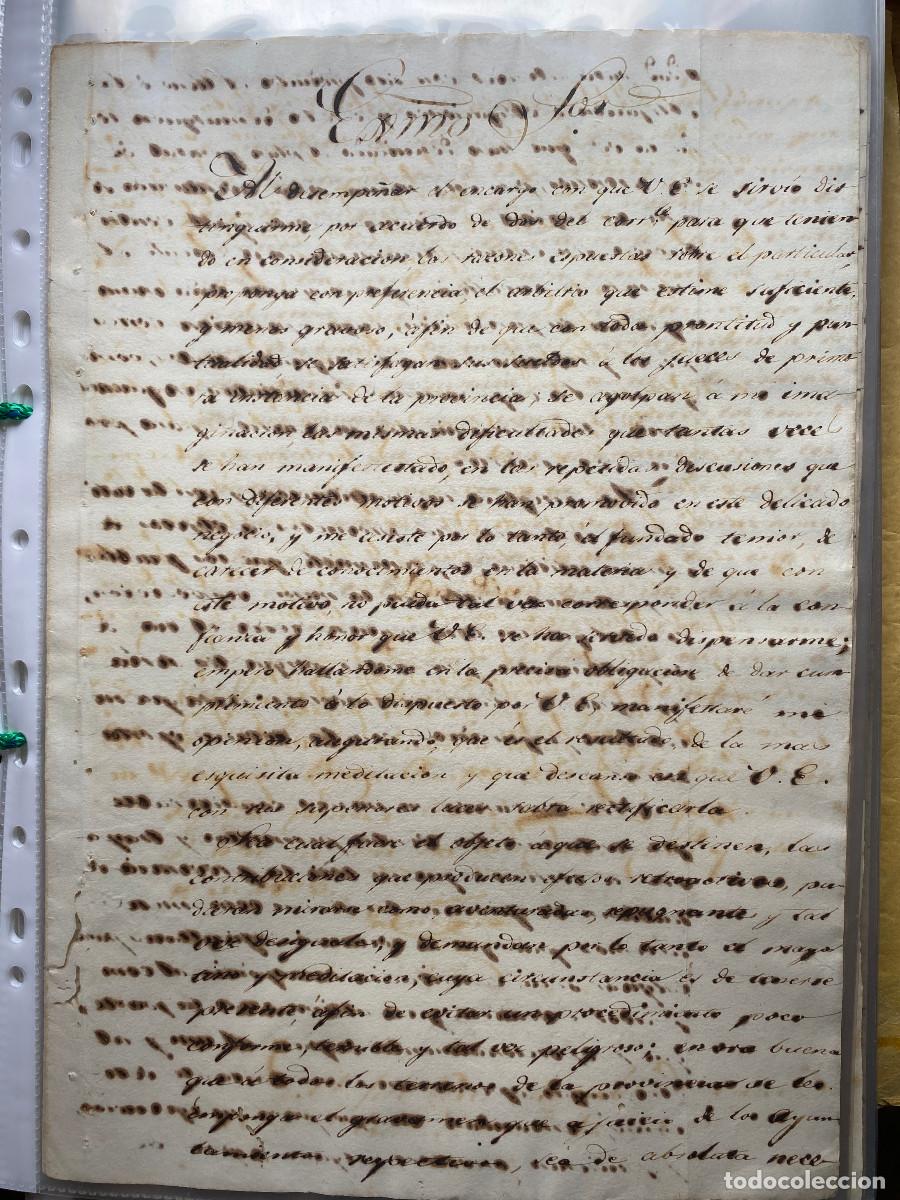 Exmo Sor
Al desempeñar el encargo con que V. E. se sirvió dis-
tinguirme, por acuerdo de dos del corrte para que tenien-
do en consideracion las razones espuestas sobre el particular,
proponga con preferencia, el arbitrio que estime suficiente,
y menos gravoso, á fin de que con toda prontitud y pun-
tualidad se satisfagan sus sueldos á los jueces de prime-
ra instancia de la provincia, se agolpan, á mi ima-
ginacion las mismas dificultades que tantas veces
se han manifestado, en las repetidas discusiones que
con diferentes motivos se han promovido en este delicado
negocio, y me asiste por lo tanto, el fundado temor, de
carecer de conocimientos en la materia y de que con
este motivo, no pueda tal vez corresponder á la con-
fianza y honor que V. E. se ha servido dispensarme;
empero hallandome en la precisa obligacion de dar cum-
plimiento á lo dispuesto por V. E. manifestaré mi
opinion, asegurando, que es el resultado, de la mas
esquisita meditacion y que descanso en que V. E.
con sus superiores luces sabrá rectificarla.
Sea cual fuere el objeto á que se destinen, las
contribuciones que producen efecto retroactivo, pu-
dieran mirarse como aventuradas, repugnantes y tal
vez desiguales, y demandan por lo tanto el mayor
tino y meditacion, cuya circunstancia es de tenerse
presente á fin de evitar un procedimiento poco
conforme, y tal vez peligroso; en ora buena
que á todos los terrenos de la provincia se les
imponga el gravamen que a juicio de los Ayun-
tamientos respectivos, sea de absoluta nece-
todocoleccion